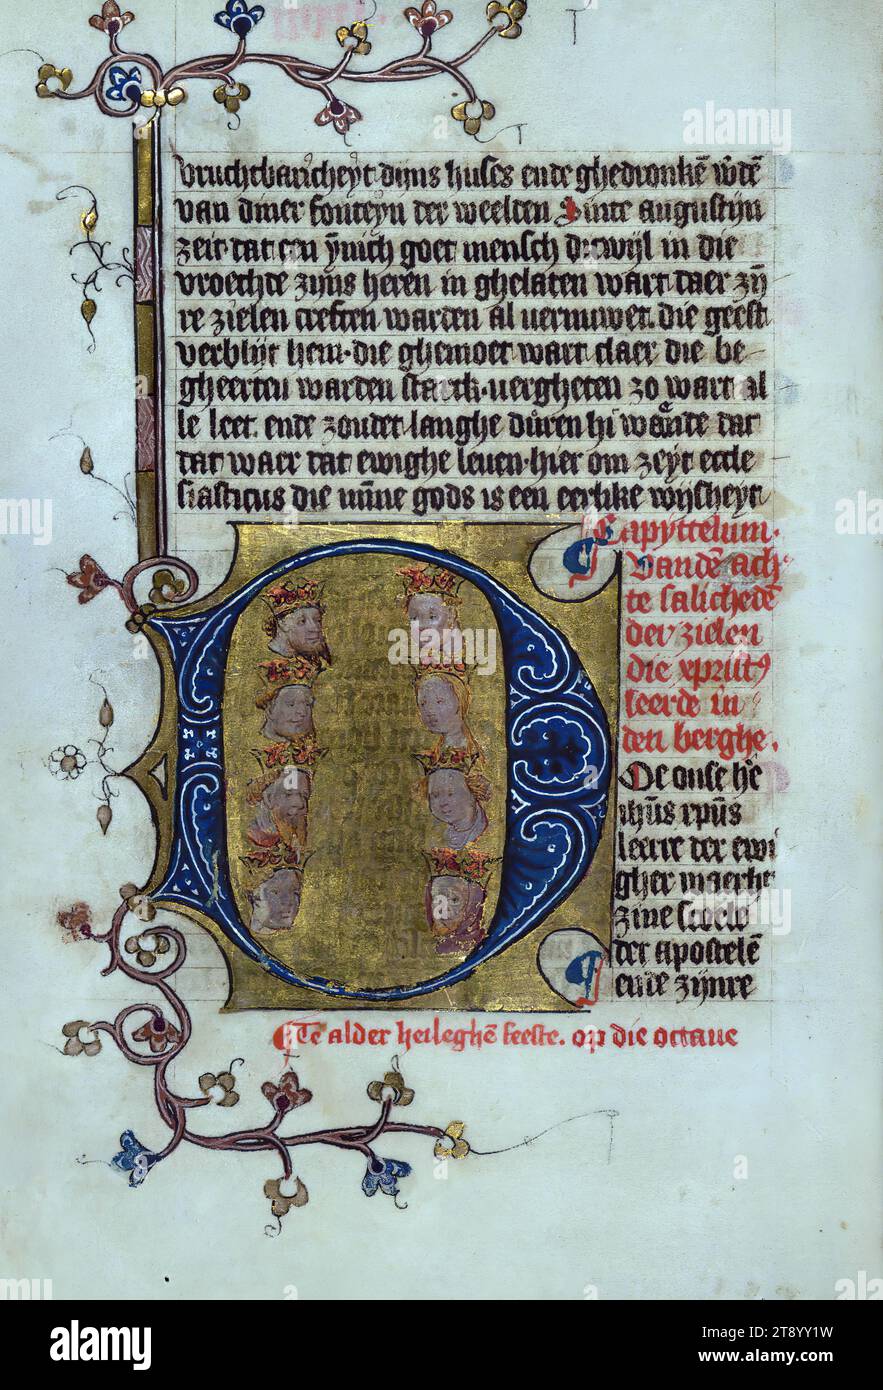 vruchtbaricheyt dijns huses ende ghedronkē
van diner fonteyn der weelten Sinte augustijn
zeit dat een goet mensch in die
vroechde zijns heren in ghelaten wart daer zijn
re zielen creften warden al vernuwet. die geest
verblijt hem. die ghemoet wart claer die be
gheerten warden starck. vergheten zo wart al
le leet. ende zonder langhe duren hi dat
dat waer dat ewighe leuen. hier om zeyt eccle
siasticus die mīne gods is een eerlike wijscheyt
Capyttelum.
Vandē ach
te salichedē
der zielen
die
leerde in
den berghe.
De onse hē
ihūs xpūs
leerre der ewi
gher waerhe
zine scoele
der apostelē
ende zijnre
Te alder heileghē feeste. op die octaue
alamy
Image ID: 2T8YY1W
www.alamy.com